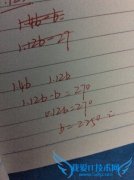 1.4b-b=
1.12b=27
1.4b 1.12b
1.12b-b=270
0.12b=270
b=2250